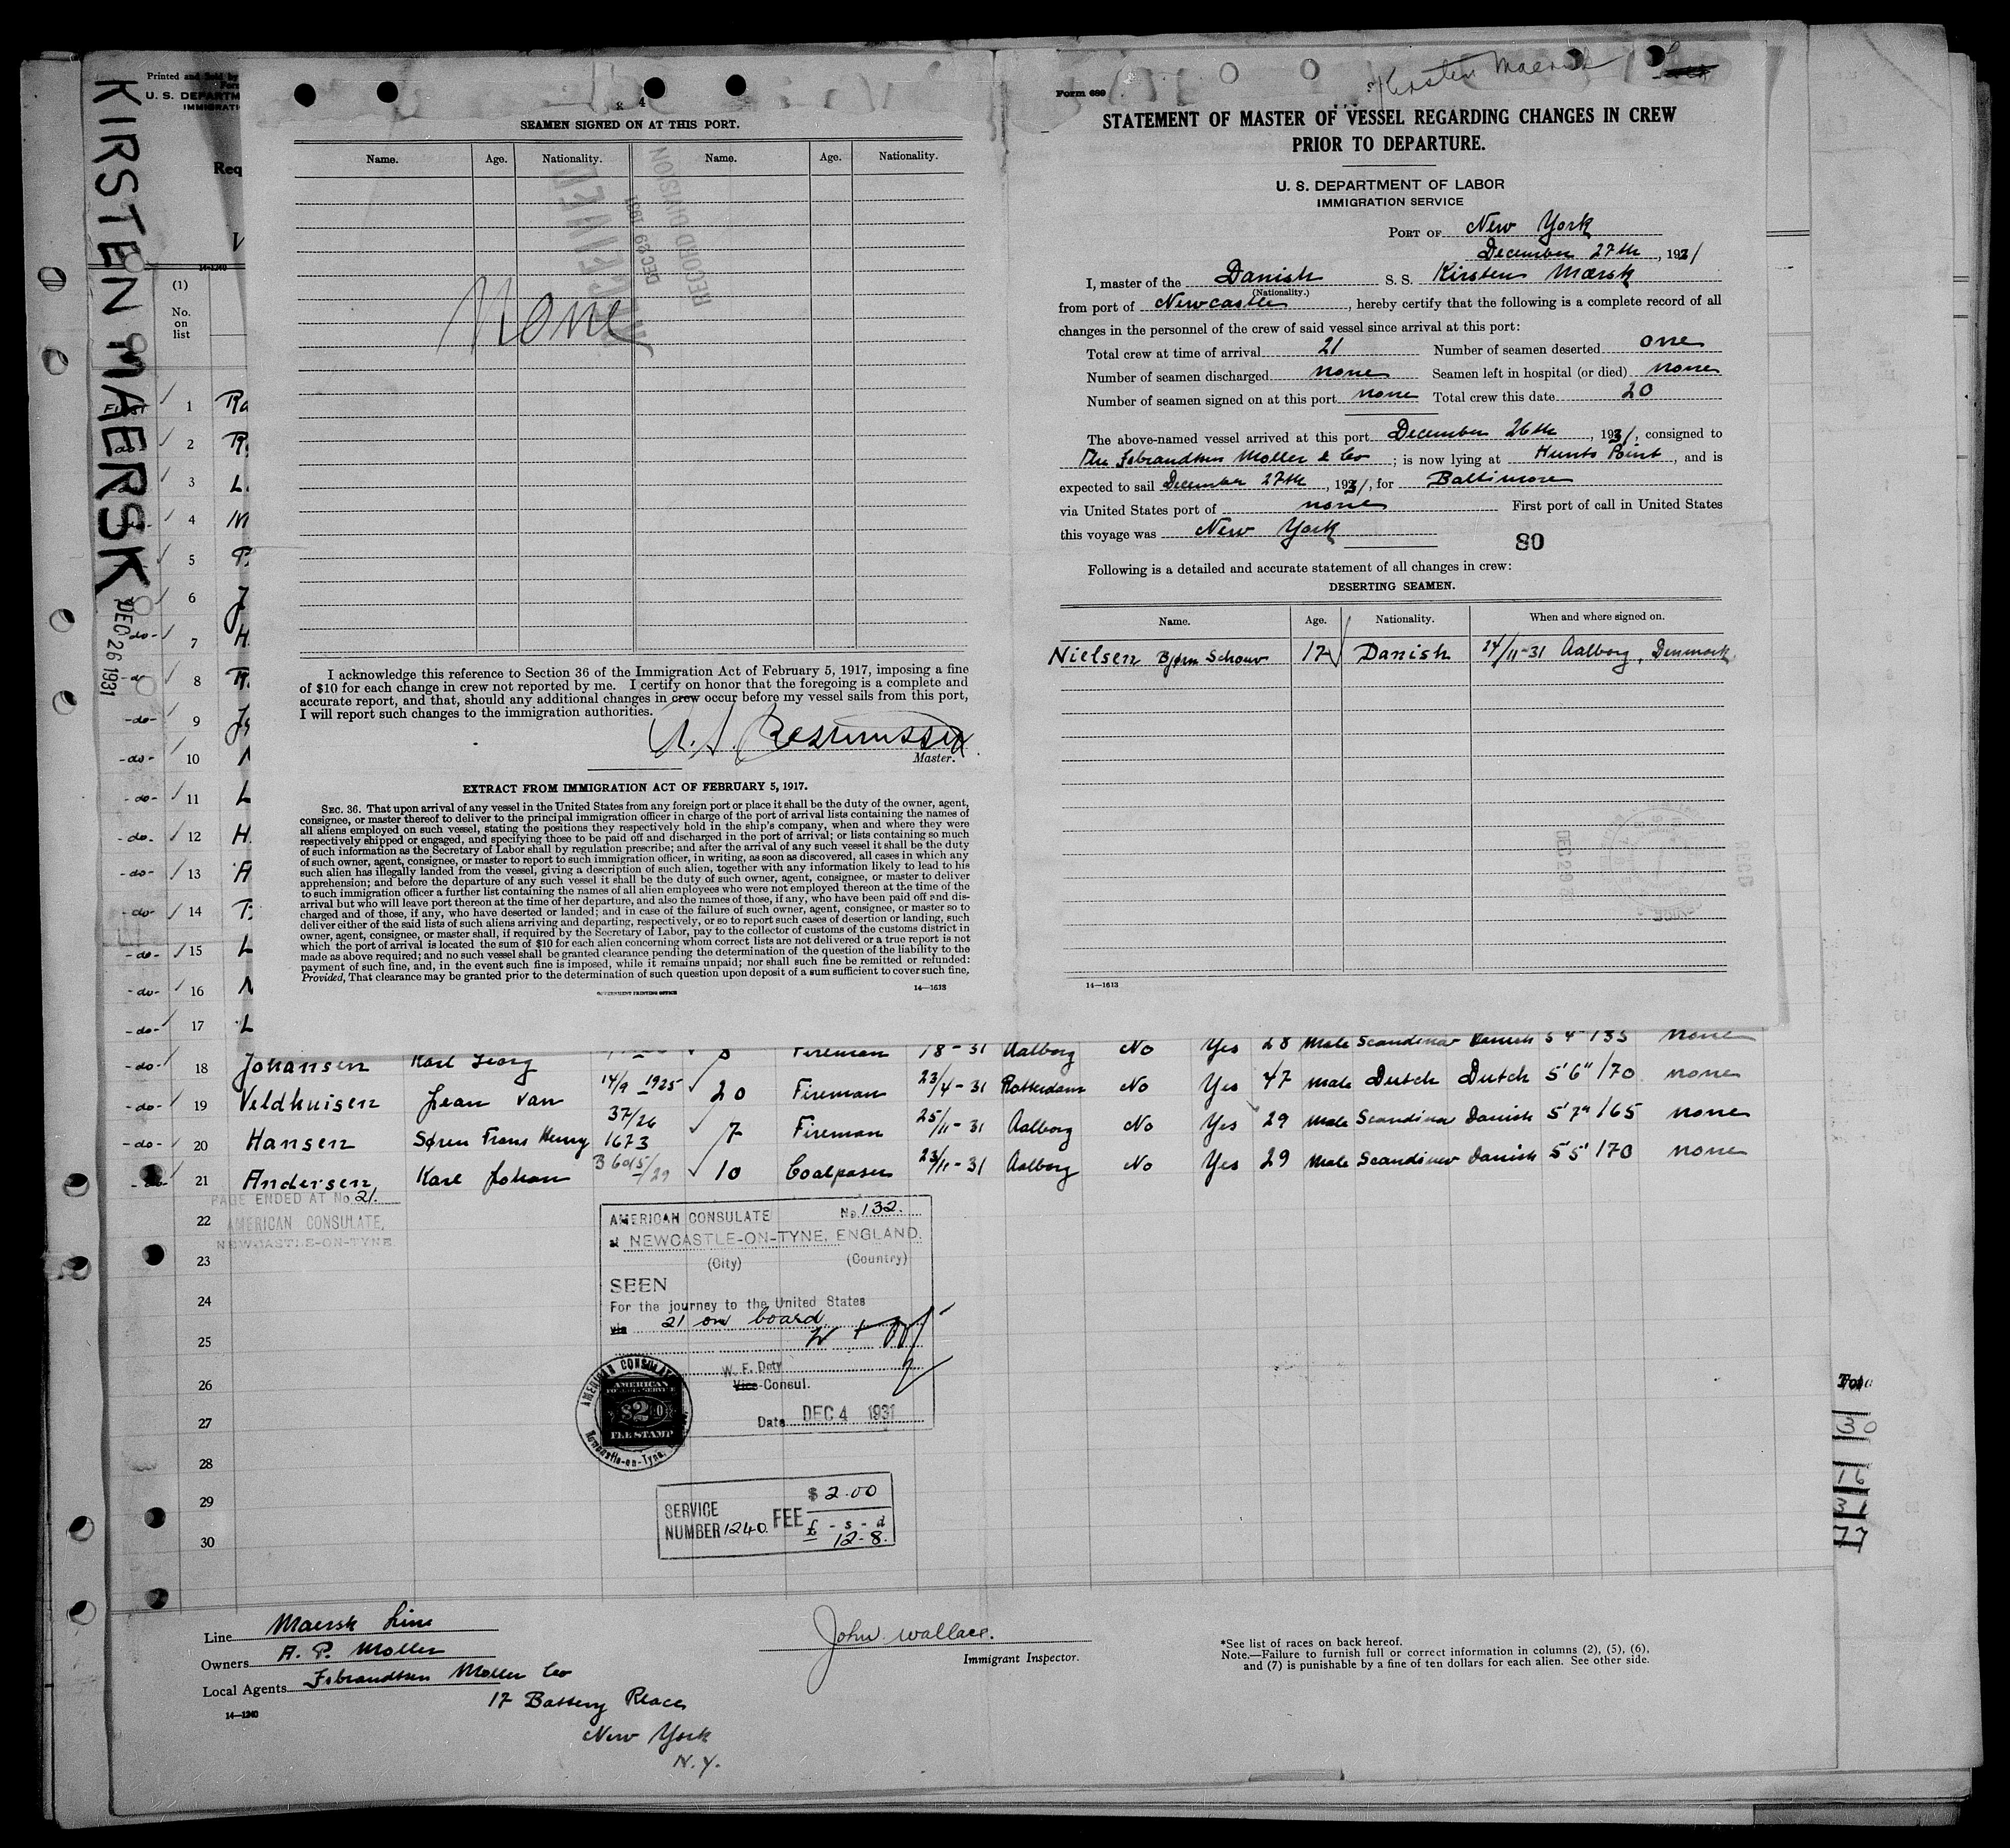 KIRSTEN MAERSK
DEC 26 1931
Printed and Sold by
U. S. DEPARTM
IMMIGRATI
Req
14-1240
(1)
No.
on
list
4
SEAMEN SIGNED ON AT THIS PORT.
Name. Age. Nationality. Name. Age. Nationality.
RECORD DIVISION
DEC 29 1931
None
I acknowledge this reference to Section 36 of the Immigration Act of February 5, 1917, imposing a fine
of $10 for each change in crew not reported by me. I certify on honor that the foregoing is a complete and
accurate report, and that, should any additional changes in crew occur before my vessel sails from this port,
I will report such changes to the immigration authorities.
Master.
EXTRACT FROM IMMIGRATION ACT OF FEBRUARY 5, 1917.
SEC. 36. That upon arrival of any vessel in the United States from any foreign port or place it shall be the duty of the owner, agent,
consignee, or master thereof to deliver to the principal immigration officer in charge of the port of arrival lists containing the names of
all aliens employed on such vessel, stating the positions they respectively hold in the ship's company, when and where they were
respectively shipped or engaged, and specifying those to be paid off and discharged in the port of arrival; or lists containing so much
of such information as the Secretary of Labor shall by regulation prescribe; and after the arrival of any such vessel it shall be the duty
of such owner, agent, consignee, or master to report to such immigration officer, in writing, as soon as discovered, all cases in which any
such alien has illegally landed from the vessel, giving a description of such alien, together with any information likely to lead to his
apprehension; and before the departure of any such vessel it shall be the duty of such owner, agent, consignee, or master to deliver
to such immigration officer a further list containing the names of all alien employees who were not employed thereon at the time of the
arrival but who will leave port thereon at the time of her departure, and also the names of those, if any, who have been paid off and dis-
charged and of those, if any, who have deserted or landed; and in case of the failure of such owner, agent, consignee, or master so to
deliver either of the said lists of such aliens arriving and departing, respectively, or so to report such cases of desertion or landing, such
owner, agent, consignee, or master shall, if required by the Secretary of Labor, pay to the collector of customs of the customs district in
which the port of arrival is located the sum of $10 for each alien concerning whom correct lists are not delivered or a true report is not
made as above required; and no such vessel shall be granted clearance pending the determination of the question of the liability to the
payment of such fine, and, in the event such fine is imposed, while it remains unpaid; nor shall such fine be remitted or refunded:
Provided, That clearance may be granted prior to the determination of such question upon deposit of a sum sufficient to cover such fine,
GOVERNMENT PRINTING OFFICE 14—1613
Kirsten Maersk
Form 689
STATEMENT OF MASTER OF VESSEL REGARDING CHANGES IN CREW
PRIOR TO DEPARTURE.
U. S. DEPARTMENT OF LABOR
IMMIGRATION SERVICE
PORT OF New York
December 27th, 1931
I, master of the Danish S. S. Kirsten Mærsk
(Nationality.)
from port of Newcastle, hereby certify that the following is a complete record of all
changes in the personnel of the crew of said vessel since arrival at this port:
Total crew at time of arrival 21 Number of seamen deserted one
Number of seamen discharged none Seamen left in hospital (or died) none
Number of seamen signed on at this port none Total crew this date 20
The above-named vessel arrived at this port December 26th, 1931, consigned to
The Isbrandtsen Moller & Co; is now lying at Hunts Point, and is
expected to sail December 27th, 1931, for Baltimore
via United States port of none First port of call in United States
this voyage was New York
80
Following is a detailed and accurate statement of all changes in crew:
DESERTING SEAMEN.
Name. Age. Nationality. When and where signed on.
Nielsen Bjørn Schouw 17 Danish 24/11-31 Aalborg, Denmark
REC'D
14—1613
1
2
3
4
5
6
-do- 7
8
-do- 9
-do- 10
-do- 11
-do- 12
-do- 13
-do- 14
-do- 15
-do- 16
-do- 17
-do- 18 Johansen Karl Georg Fireman 18-31 Aalborg No Yes 28 Male Scandinav Danish 5'4" 135 none
-do- 19 Veldhuisen Jean van 14/9 1925 20 Fireman 23/4-31 Rotterdam No Yes 47 Male Dutch Dutch 5'6" 170 none
-do- 20 Hansen Søren Frans Henry 37/26 1673 7 Fireman 25/11-31 Aalborg No Yes 29 Male Scandinav Danish 5'7" 165 none
-do- 21 Andersen Karl Johan 10 Coalpaser 23/11-31 Aalborg No Yes 29 Male Scandinav Danish 5'5" 170 none
PAGE ENDED AT No 21.
22 AMERICAN CONSULATE,
NEWCASTLE-ON-TYNE.
23
24
25
26
27
28
29
30
AMERICAN CONSULATE No. 132.
at NEWCASTLE-ON-TYNE, ENGLAND.
(City) (Country)
SEEN
For the journey to the United States
via 21 on board
W. F. Doty
Vice-Consul.
Date DEC 4 1931
AMERICAN CONSULATE
AMERICAN
FOREIGN SERVICE
$2.00
FEE STAMP
Newcastle-on-Tyne.
SERVICE
NUMBER 1240. FEE $2.00
£ - s - d
12-8.
30
16
31
77
Line Maersk Line
Owners A. P. Moller
Local Agents Isbrandtsen Moller Co
17 Battery Place
New York
N. Y.
14—1240
John Wallace.
Immigrant Inspector.
*See list of races on back hereof.
Note.—Failure to furnish full or correct information in columns (2), (5), (6),
and (7) is punishable by a fine of ten dollars for each alien. See other side.